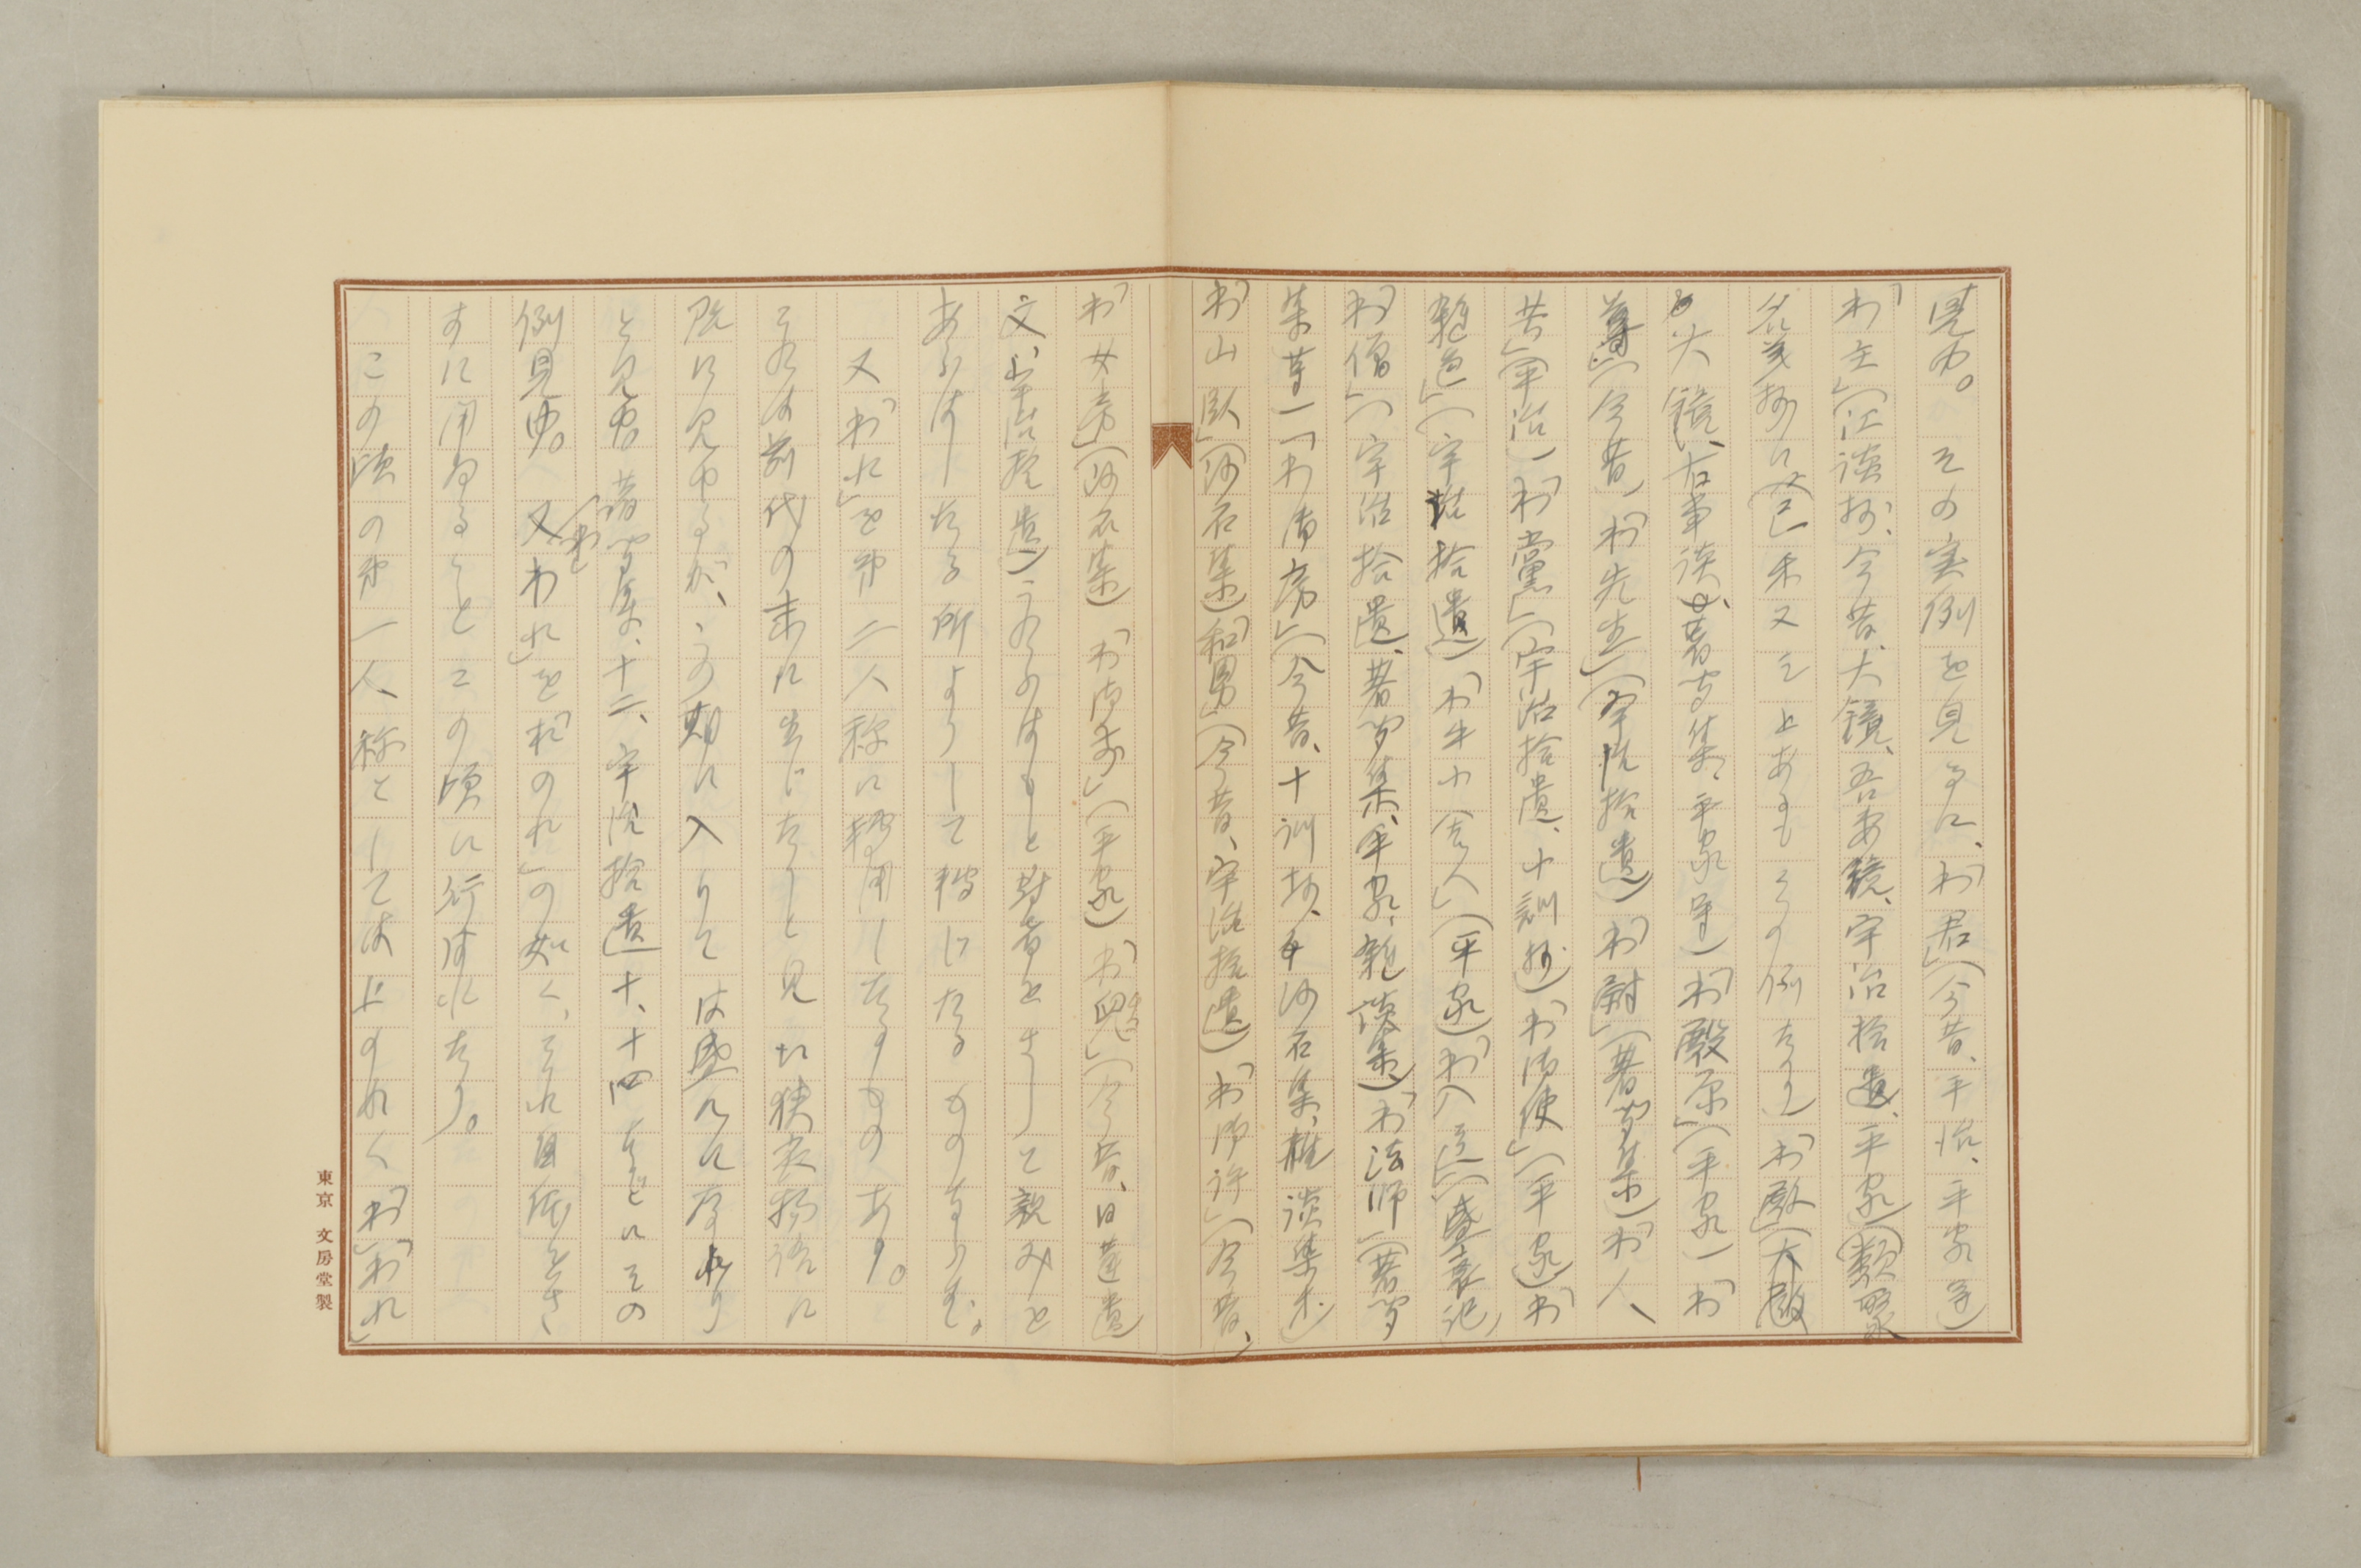 見ゆ。その実例を見るに、「わ君」(今昔、平治、平家等)
「わ主」(江談抄、今昔、大鏡、吾妻鏡、宇治拾遺、平家)(類聚
名義抄に
大鏡、古事談、著聞集、平家等)「わ殿原」(平家)「わ
(今昔)「わ先生」(宇治拾遺)「わ尉」(著聞集)「わ人
共」(平治)「わ党」(宇治拾遺、十訓抄)「わ御使」(平家)「わ
雑色」(宇治拾遺)「わ牛小舎人」(平家)「わ入道」(盛衰記)
「わ僧」(宇治拾遺、著聞集、平家、雑談集)「わ法師(著聞
集等)「わ御房」(今昔、十訓抄、沙石集、雑談集)
「わ山臥」(沙石集)「和男」(今昔、宇治拾遺)「わ御許」(今昔、)
「わ女房」(沙石集)「わ御前」(平家)「わ児」(今昔、日蓮遺
文、宇治拾遺)これらはもと対者をさして親みを
あらはしたる所よりして転じたるものならむ。
又「われ」を第二人称に転用したるものあり。
これは前代の末に生じたりと見え狭衣物語に
既に見ゆるが、この期に入りては盛んに
見ゆ。著聞集、十二、宇治拾遺十、十四などにその
例見ゆ。又「われ」を「おのれ」の如く、それ自体をさ
すに用ゐることこの頃に行はれたり。
この頃の第一人称としては上の如く「わ」「われ」
東京 文房堂製